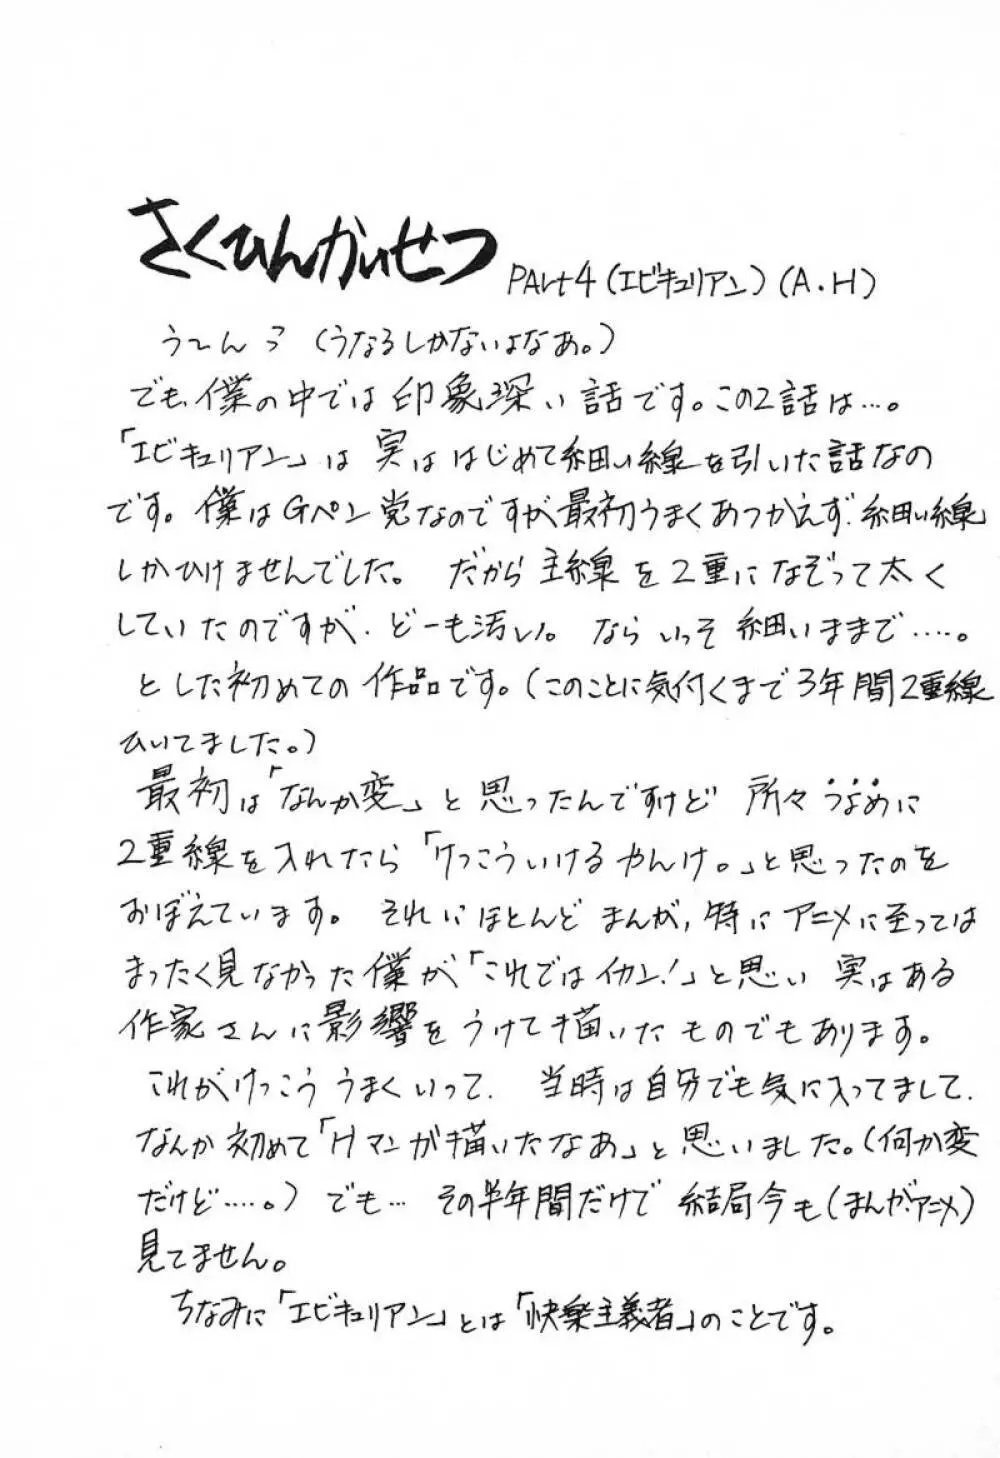 さくひんかいせつ PArt4(エピキュリアン)(A.H)
う~んっ(うなるしかないよなあ。)
でも、僕の中では印象深い話です。この2話は…。
「エピキュリアン」は実ははじめて細い線を引いた話なの
です。僕はGペン党なのですが最初うまくあつかえず、細い線
しかひけませんでした。 だから主線を2重になぞって太く
していたのですが、どーも汚い。ならいっそ細いままで……。
とした初めての作品です。(このことに気付くまで3年間2重線
ひいてました。)
最初は「なんか変」と思ったんですけど 所々うなめに
2重線を入れたら「けっこういけるやんけ。」と思ったのを
おぼえています。 それにほとんどまんが、特にアニメに至っては
まったく見なかった僕が「これではイカン!」と思い 実はある
作家さんに影響をうけて描いたものでもあります。
これがけっこううまくいって、 当時は自分でも気に入ってまして、
なんか初めて「Hマンガ描いたなあ」と思いました。(何か変
だけど……。)でも… その半年間だけで結局今も(まんが、アニメ)
見てません。
ちなみに「エピキュリアン」とは「快楽主義者」のことです。